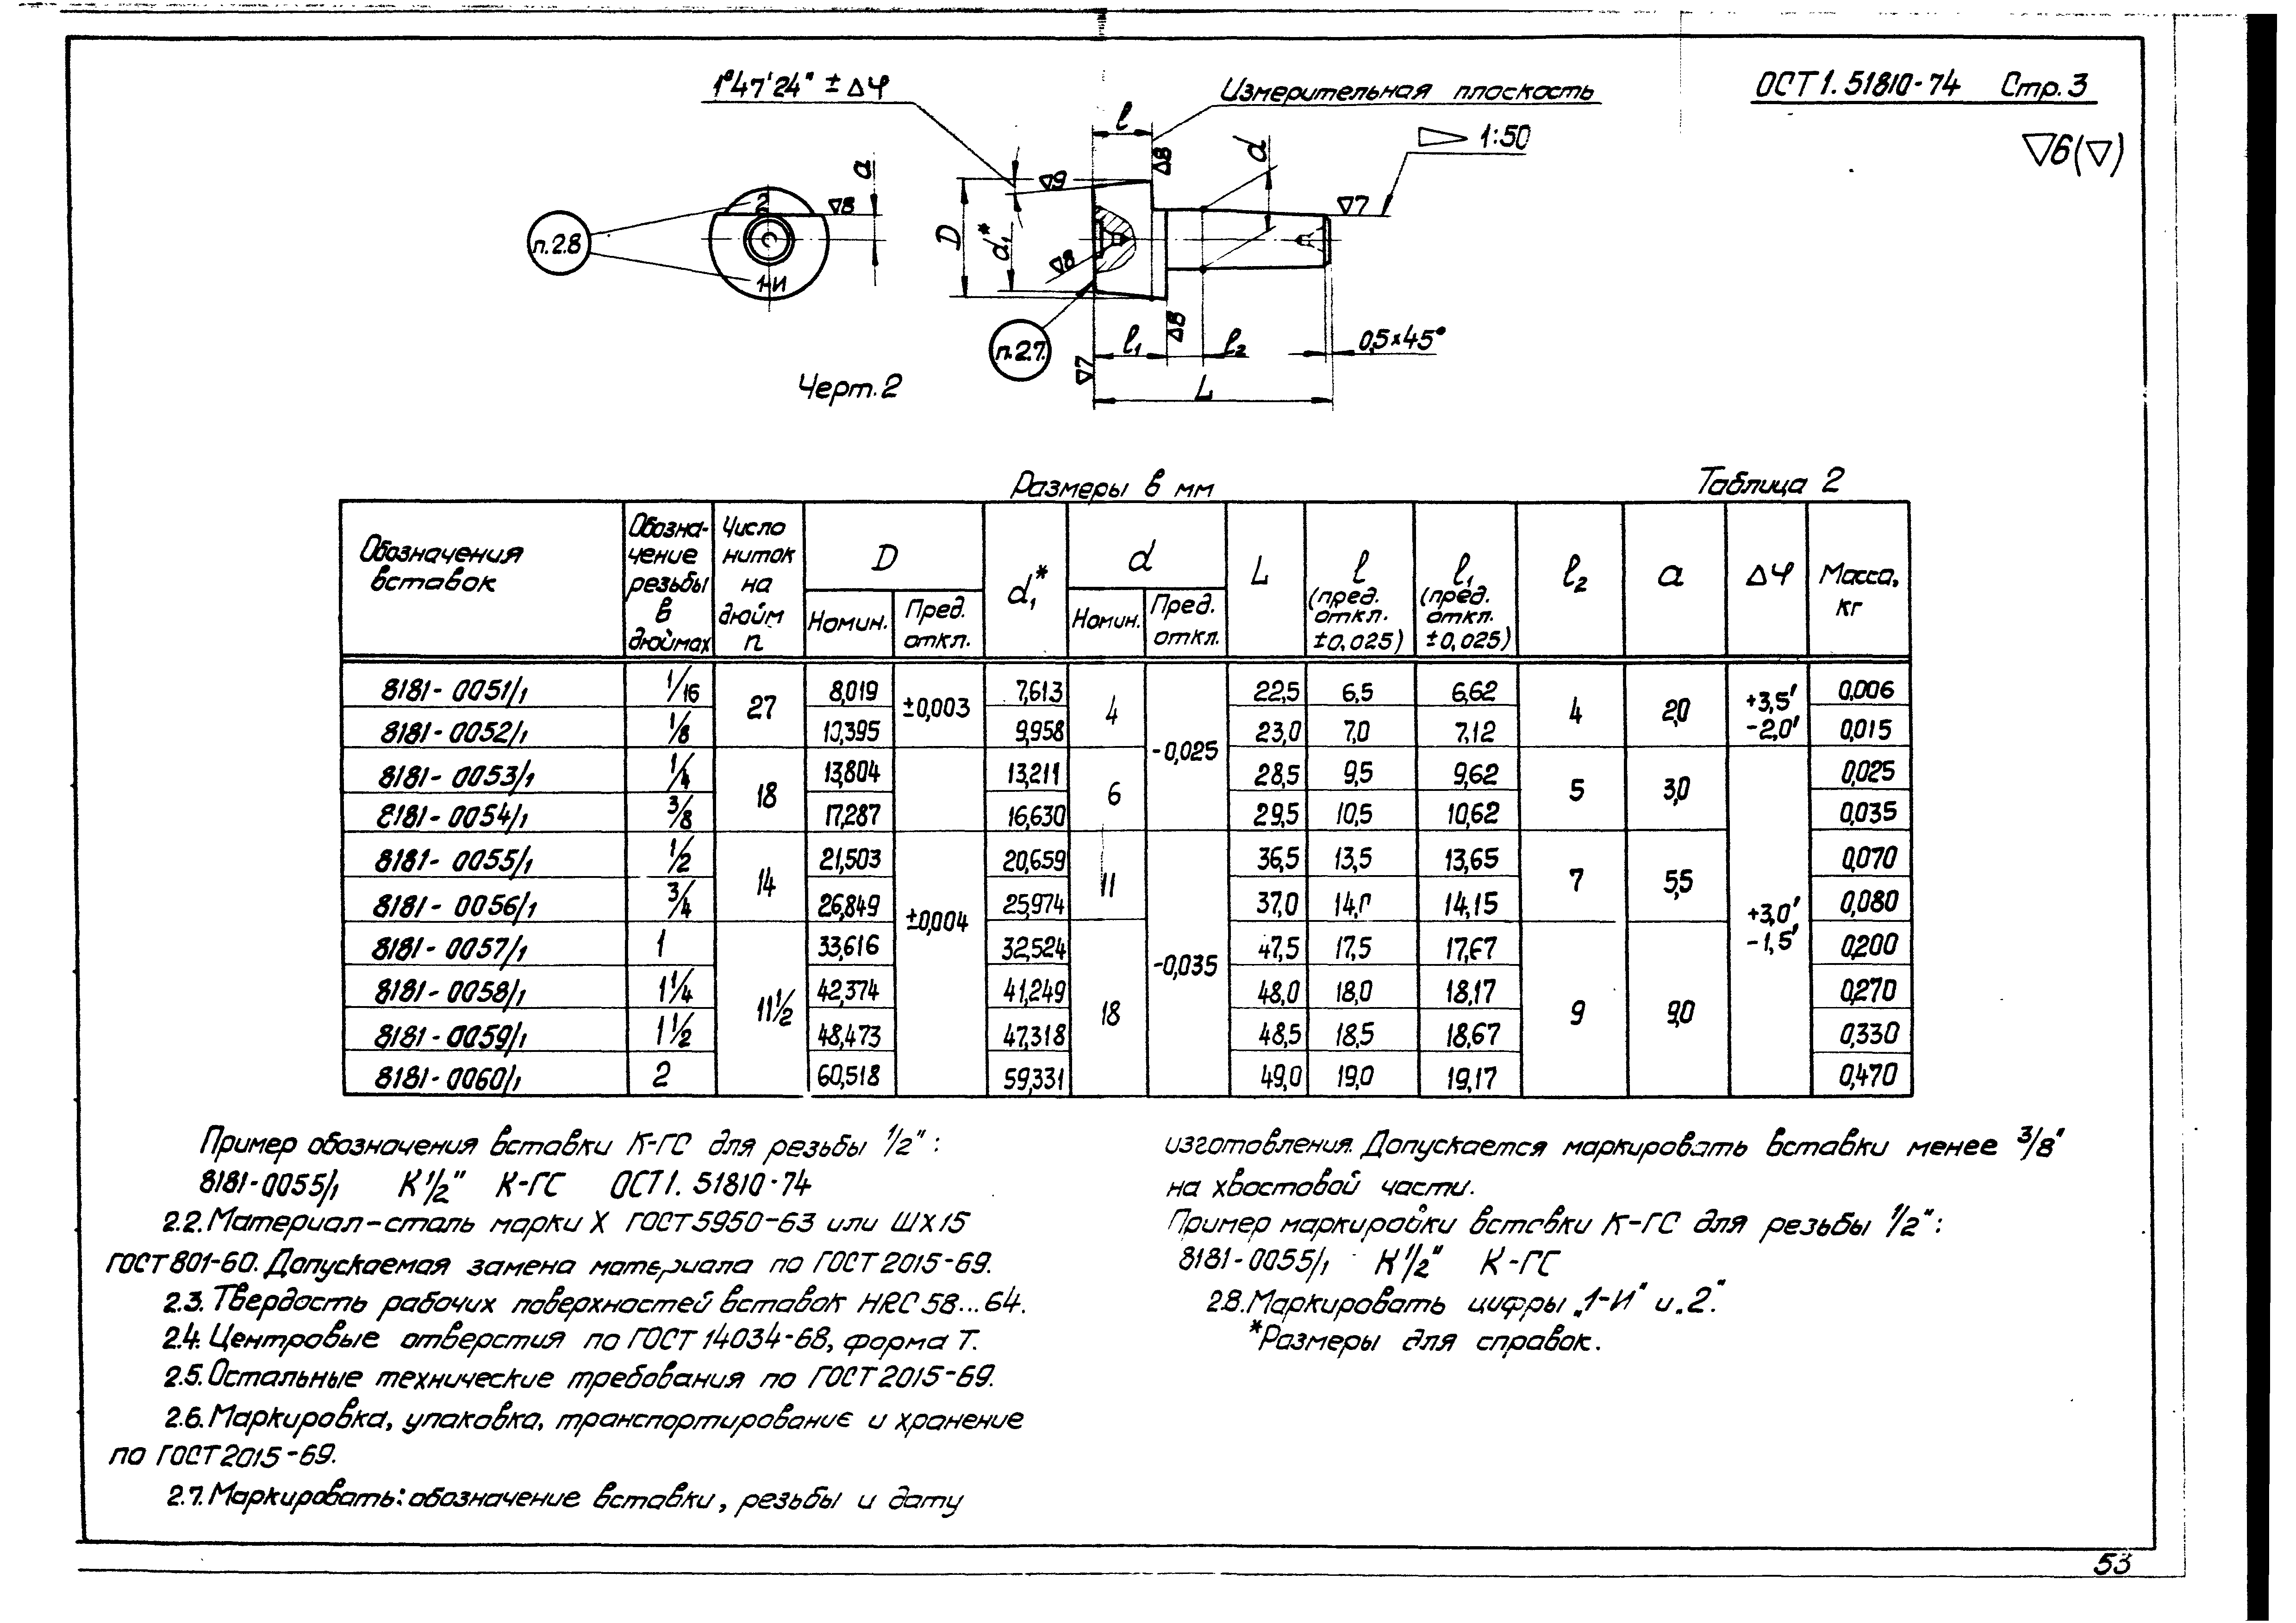 ОСТ 1. 51810-74 Стр. 3
▽6(▽)
1°47'24" ± Δφ
Измерительная плоскость
▷ 1:50
l
d
a
▽9
▽8
▽8
▽7
2
п.2.8
1-И
D
d₁*
▽8
п.2.7.
▽7
l₁
▽8
l₂
0,5×45°
L
Черт. 2
Размеры в мм
Таблица 2
Обозначения вставок | Обозначение резьбы в дюймах | Число ниток на дюйм n | D Номин. | D Пред. откл. | d₁* | d Номин. | d Пред. откл. | L | l (пред. откл. ±0,025) | l₁ (пред. откл. ±0,025) | l₂ | a | Δφ | Масса, кг
8181-0051/1 | 1/16 | 27 | 8,019 | ±0,003 | 7,613 | 4 | -0,025 | 22,5 | 6,5 | 6,62 | 4 | 2,0 | +3,5' -2,0' | 0,006
8181-0052/1 | 1/8 | 10,395 | 9,958 | 23,0 | 7,0 | 7,12 | 0,015
8181-0053/1 | 1/4 | 18 | 13,804 | ±0,004 | 13,211 | 6 | 28,5 | 9,5 | 9,62 | 5 | 3,0 | +3,0' -1,5' | 0,025
8181-0054/1 | 3/8 | 17,287 | 16,630 | 29,5 | 10,5 | 10,62 | 0,035
8181-0055/1 | 1/2 | 14 | 21,503 | 20,659 | 11 | -0,035 | 36,5 | 13,5 | 13,65 | 7 | 5,5 | 0,070
8181-0056/1 | 3/4 | 26,849 | 25,974 | 37,0 | 14,0 | 14,15 | 0,080
8181-0057/1 | 1 | 11 1/2 | 33,616 | 32,524 | 18 | 47,5 | 17,5 | 17,67 | 9 | 9,0 | 0,200
8181-0058/1 | 1 1/4 | 42,374 | 41,249 | 48,0 | 18,0 | 18,17 | 0,270
8181-0059/1 | 1 1/2 | 48,473 | 47,318 | 48,5 | 18,5 | 18,67 | 0,330
8181-0060/1 | 2 | 60,518 | 59,331 | 49,0 | 19,0 | 19,17 | 0,470
Пример обозначения вставки К-ГС для резьбы 1/2":
8181-0055/1 К 1/2" К-ГС ОСТ 1. 51810-74
2.2. Материал-сталь марки Х ГОСТ 5950-63 или ШХ15
ГОСТ 801-60. Допускаемая замена материала по ГОСТ 2015-69.
2.3. Твердость рабочих поверхностей вставок HRC 58...64.
2.4. Центровые отверстия по ГОСТ 14034-68, форма Т.
2.5. Остальные технические требования по ГОСТ 2015-69.
2.6. Маркировка, упаковка, транспортирование и хранение
по ГОСТ 2015-69.
2.7. Маркировать: обозначение вставки, резьбы и дату
изготовления. Допускается маркировать вставки менее 3/8"
на хвостовой части.
Пример маркировки вставки К-ГС для резьбы 1/2":
8181-0055/1 К 1/2" К-ГС
2.8. Маркировать цифры „1-И" и „2".
*Размеры для справок.
53